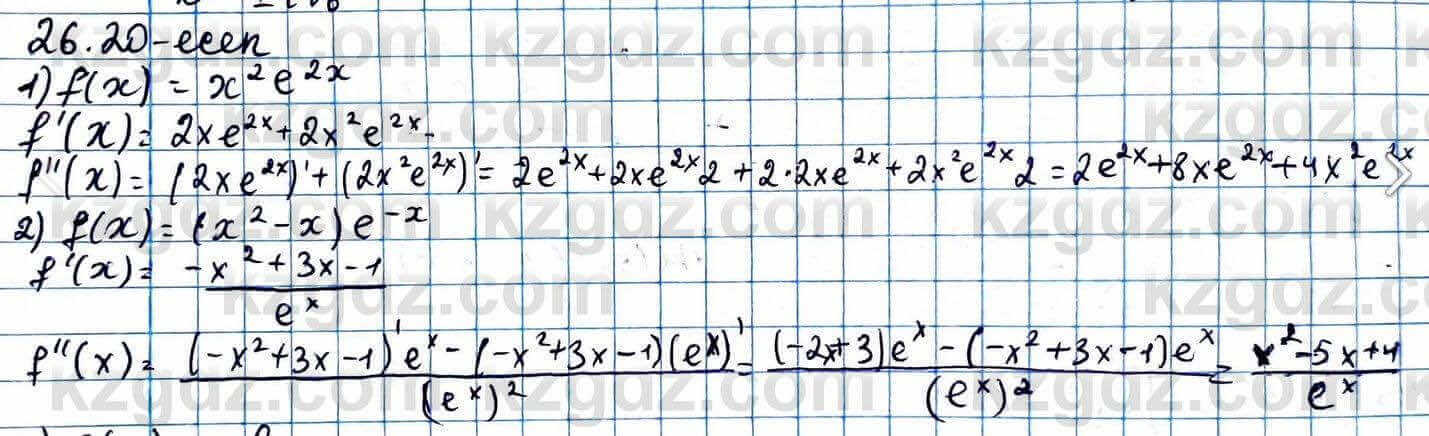 26.20-есеп
1) f(x) = x²e^{2x}
f'(x) = 2xe^{2x} + 2x²e^{2x}
f''(x) = (2xe^{2x})' + (2x²e^{2x})' = 2e^{2x} + 2xe^{2x}2 + 2·2xe^{2x} + 2x²e^{2x}2 = 2e^{2x} + 8xe^{2x} + 4x²e^{2x}
2) f(x) = (x² - x)e^{-x}
f'(x) = \frac{-x² + 3x - 1}{e^x}
f''(x) = \frac{(-x² + 3x - 1)'e^x - (-x² + 3x - 1)(e^x)'}{(e^x)²} = \frac{(-2x + 3)e^x - (-x² + 3x - 1)e^x}{(e^x)²} = \frac{x² - 5x + 4}{e^x}
kzgdz.com